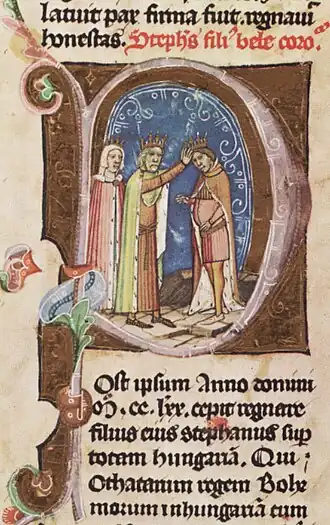 latuit pax firma fiut. regnauit
honestas. Stephs fili' bele coro
Ost ipsum Anno domini
M. cc. lxx. cepit regnare
filius eius stephanus sup
totam hungariā. Qui
Othacarum regem Bohe
morum in hungariā cum